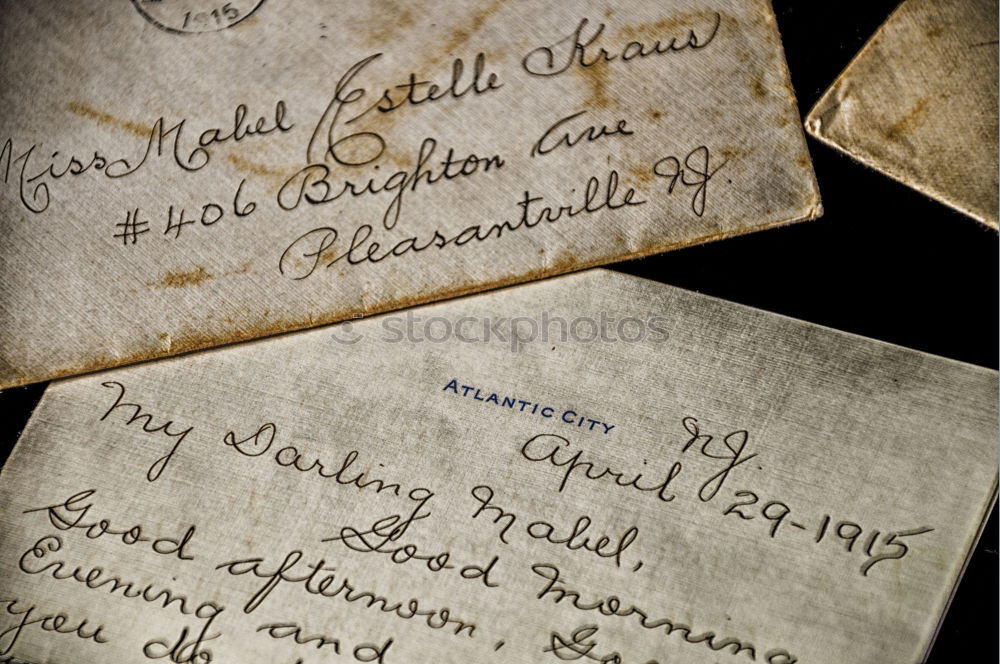 1915
Miss Mabel Estelle Kraus
#406 Brighton Ave
Pleasantville NJ.
stockphotos
ATLANTIC CITY NJ.
April 29-1915
My Darling Mabel,
Good Morning
Good afternoon, Good
Evening and
you do